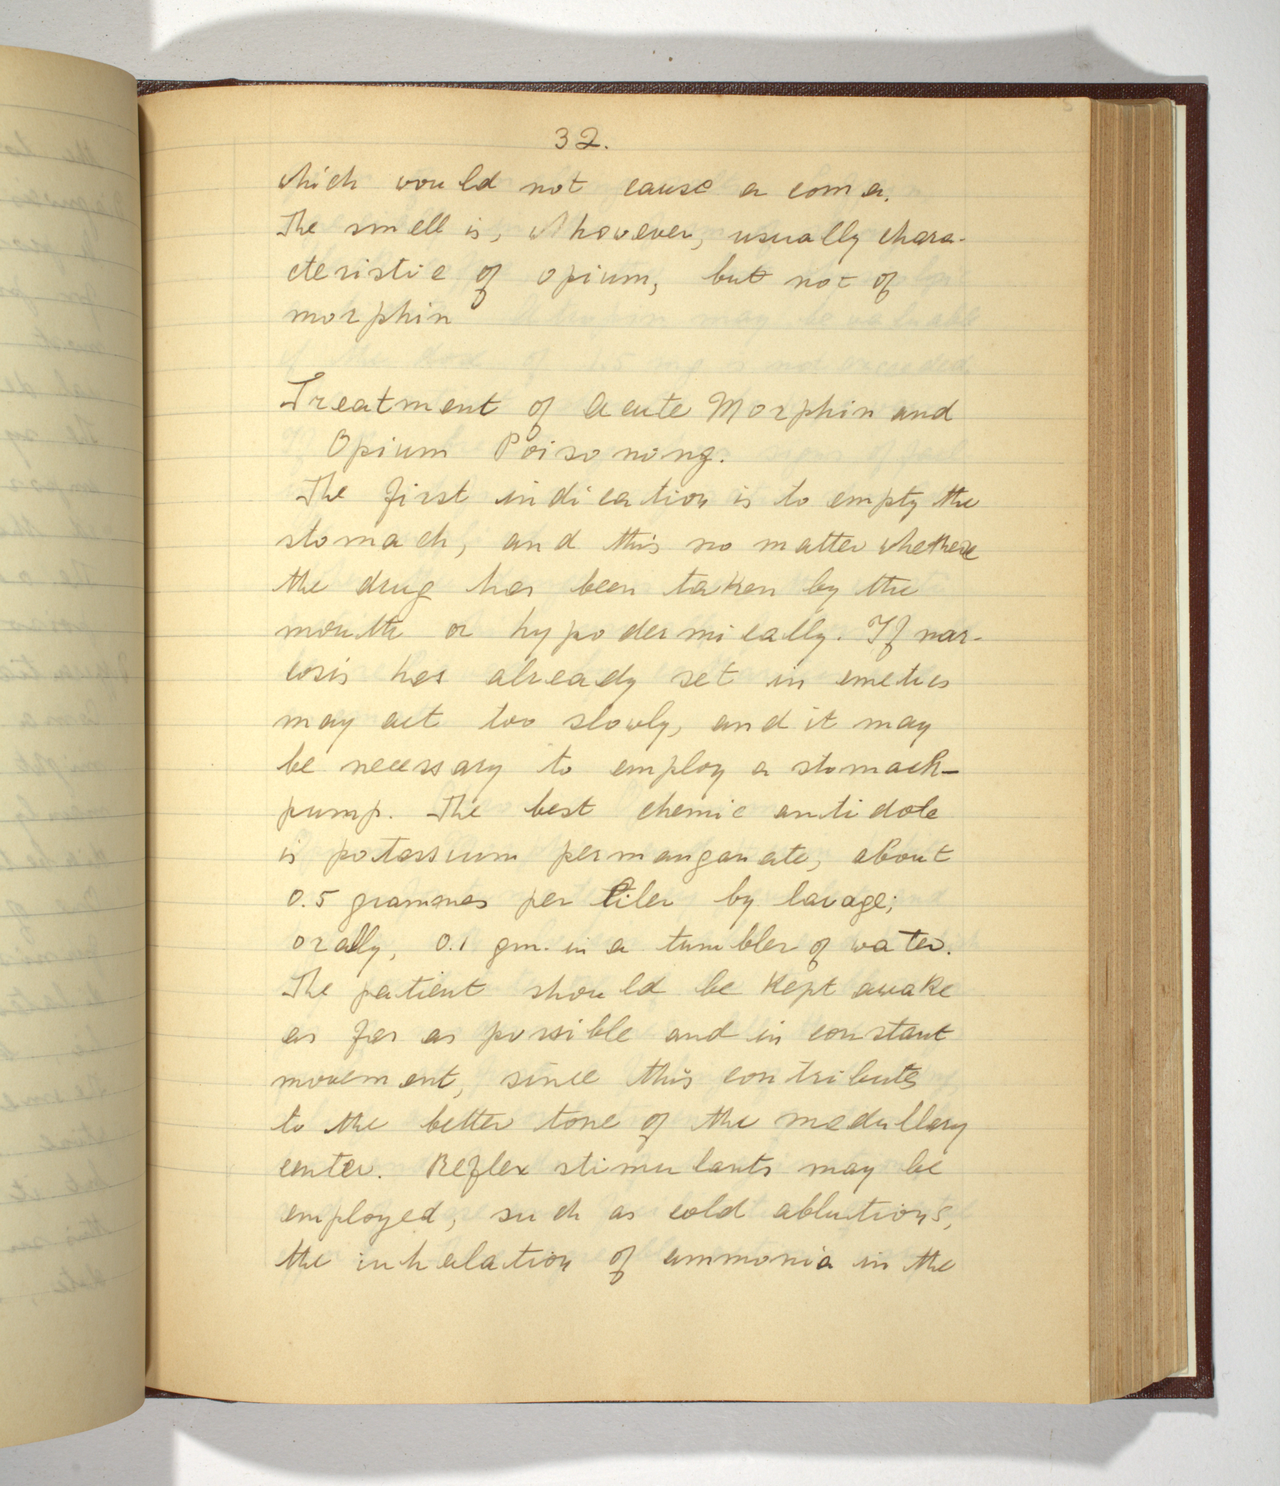 32.
which would not cause a coma.
The smell is, however, usually chara-
cteristic of opium, but not of
morphin
Treatment of Acute Morphin and
Opium Poisonong.
The first indication is to empty the
stomach, and this no matter whethere
the drug has been taken by the
mouth or hypodermically. If nar-
cosis has already set in emetics
may act too slowly, and it may
be necessary to employ a stomach-
pump. The best chemic antidote
is potassium permanganate, about
0.5 grammes per liler by lavage;
orally, 0.1 gm. in a tumbler of water.
The patient should be kept awake
as far as possible and in constant
movement, since this contributes
to the better tone of the medullary
center. Reflex stimulants may be
employed, such as cold ablutions,
the inhalation of ammonia in the